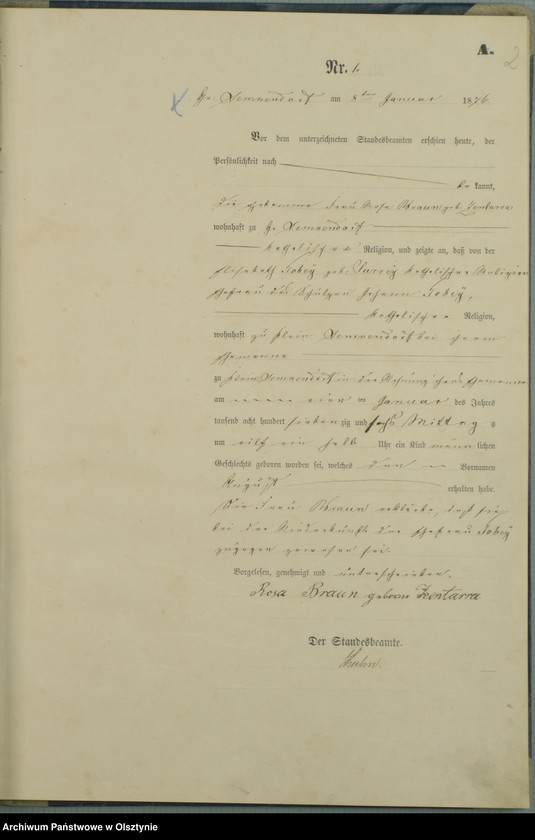 A.
2
Nr. 1.
am 8ten Januar 1876
Vor dem unterzeichneten Standesbeamten erschien heute, der
Persönlichkeit nach
be kannt,
die Hebamme Frau Rosa Braun geb. Zentarra
wohnhaft zu
katholischer Religion, und zeigte an, daß von der
Elisabeth geb. katholischer Religion
Ehefrau des Johann
katholischer Religion,
wohnhaft zu Klein bei ihrem
Ehemanne
zu Klein in der Wohnung ihres Ehemannes
am vier ten Januar des Jahres
tausend acht hundert sieben zig und sechs Mittag s
um elf ein halb Uhr ein Kind männ lichen
Geschlechts geboren worden sei, welches den Vornamen
August erhalten habe.
Die Frau Braun erklärte, daß sie
bei der Niederkunft der Ehefrau
zugegen gewesen sei.
Vorgelesen, genehmigt und unterschrieben.
Rosa Braun geboren Zentarra
Der Standesbeamte.
Archiwum Państwowe w Olsztynie